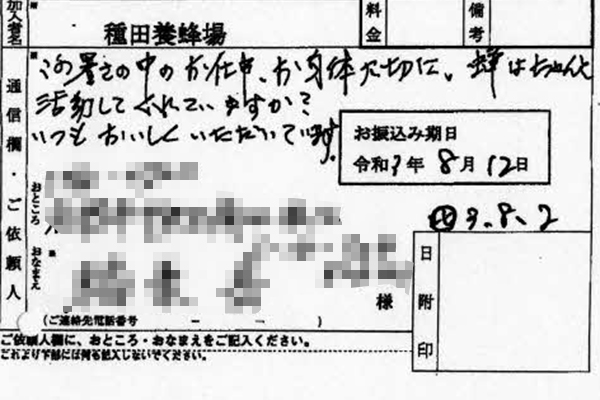 加入者名
種田養蜂場
料金
備考
通信欄・ご依頼人
この暑さの中のお仕事、お身体大切に。蜂はちゃんと
活動してくれていますか?
いつもおいしくいただいています。
お振込み期日
令和3年8月12日
3.8.2
おところ
おなまえ
様
(ご連絡先電話番号 － － )
日附印
ご依頼人欄に、おところ・おなまえをご記入ください。
これより下部には何も記入しないでください。